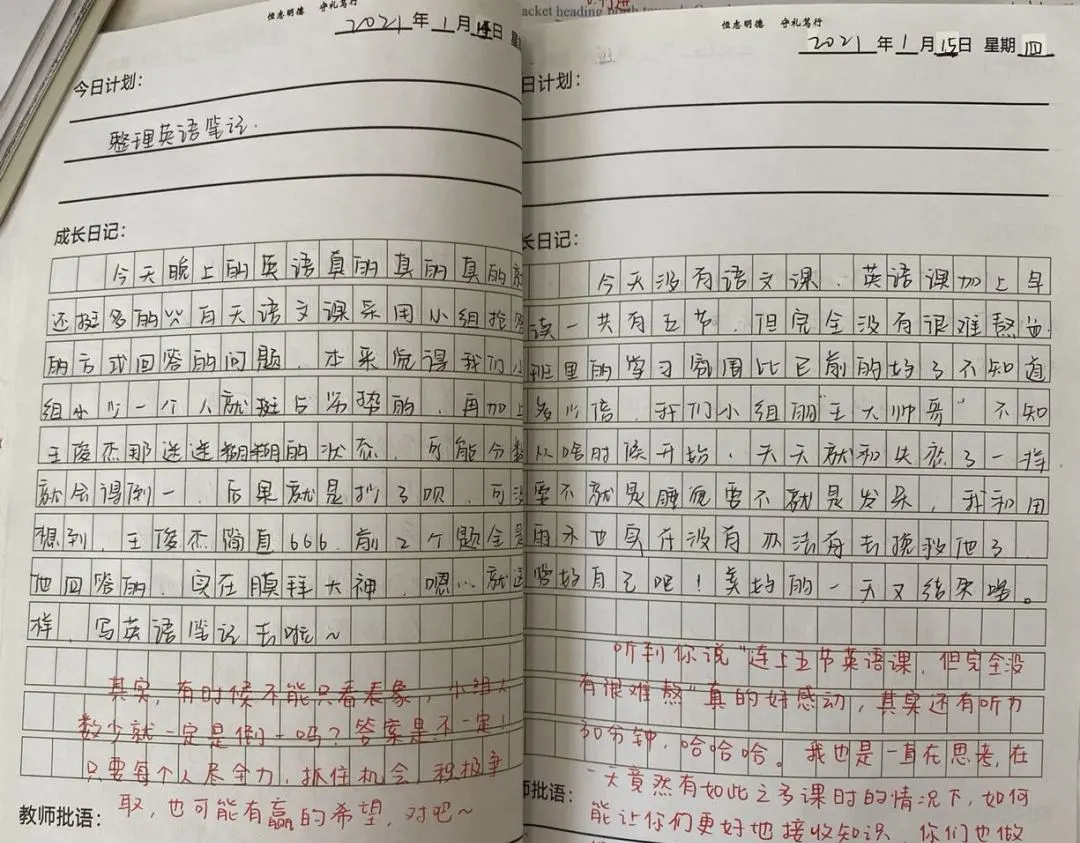 恒志明德 守礼笃行
2021年1月14日 星
今日计划：
整理英语笔记.
成长日记：
今天晚上的英语真的真的真的
还挺多的
今天语文课采用小组抢答
的方式回答的问题. 本来觉得我们小
组少一个人就挺占劣势的. 再加上
王俊杰那迷迷糊糊的状态. 可能分数
就会得倒一. 后果就是抄了呗. 可没
想到, 王俊杰简直666. 前2个题全是
他回答的. 实在膜拜大神. 嗯… 就这
样. 写英语笔记去啦~
其实, 有时候不能只看表象, 小组人
数少就一定是倒一吗? 答案是不一定!
只要每个人尽全力, 抓住机会, 积极争
教师批语： 取, 也可能有赢的希望, 对吧~
acket heading
恒志明德 守礼笃行
2021年1月15日 星期四
日计划：
长日记：
今天没有语文课. 英语课加上早
读一共有五节. 但完全没有很难熬
班里的学习氛围比已前的好了不知道
多少倍. 我们小组的"王大帅哥" 不知
从啥时候开始, 天天就和失恋了一样
要不就是睡觉要不就是发呆, 我和田
雨禾也实在没有办法再去挽救他了
管好自己吧! 美好的一天又结束咯。
听到你说"连上五节英语课, 但完全没
有很难熬"真的好感动, 其实还有听力
30分钟, 哈哈哈。我也是一直在思考, 在
师批语： 一天竟然有如此之多课时的情况下, 如何
能让你们更好地接收知识, 你们也做